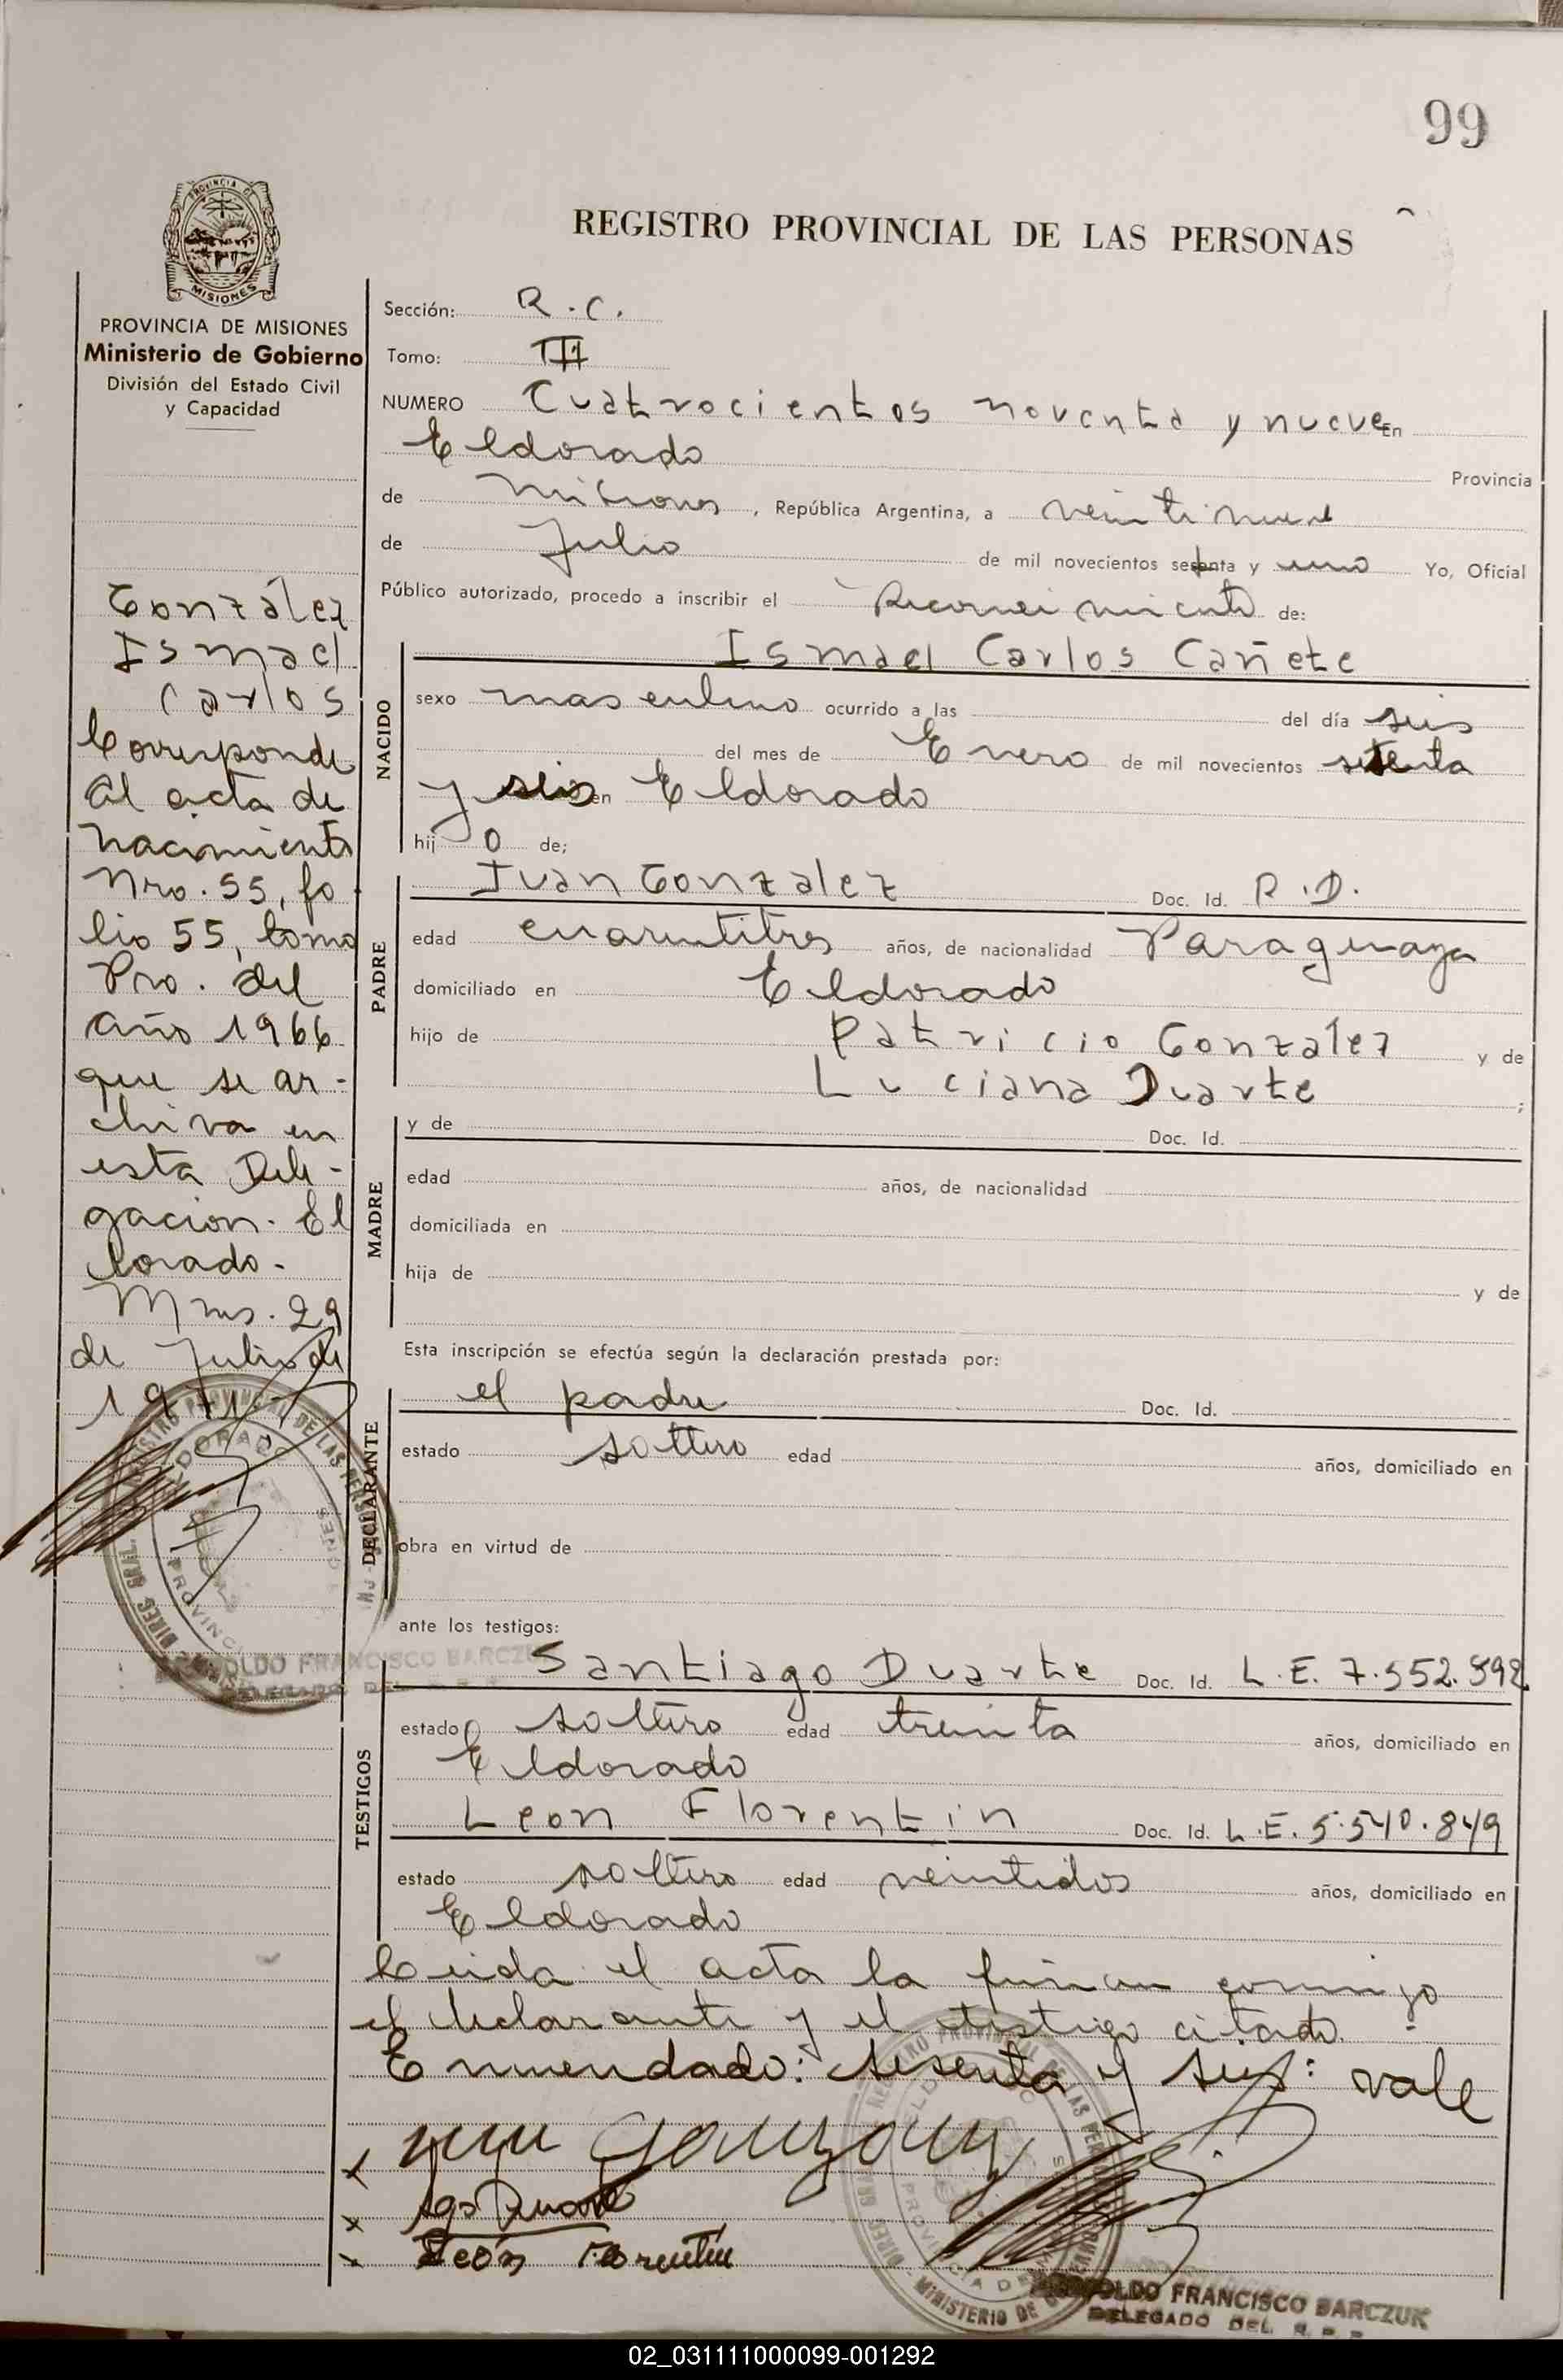 99
PROVINCIA DE
MISIONES
REGISTRO PROVINCIAL DE LAS PERSONAS
PROVINCIA DE MISIONES
Ministerio de Gobierno
División del Estado Civil
y Capacidad
González
Ismael
Carlos
Corresponde
al acta de
nacimiento
Nro. 55, fo
lio 55, tomo
Pro. del
año 1966
que se ar-
chiva en
esta Dele-
gacion. El
dorado-
Mnes. 29
de Julio de
1971.
Sección: R.C.
Tomo: III
NUMERO Cuatrocientos noventa y nueve En
Eldorado Provincia
de Misiones, República Argentina, a veintinueve
de Julio de mil novecientos setenta y uno Yo, Oficial
Público autorizado, procedo a inscribir el Reconocimiento de:
NACIDO
Ismael Carlos Cañete
sexo masculino ocurrido a las del día seis
del mes de Enero de mil novecientos sesenta
y seis en Eldorado
hijo de;
PADRE
Juan Gonzalez Doc. Id. R.D.
edad cuarentitres años, de nacionalidad Paraguaya
domiciliado en Eldorado
hijo de Patricio González y de
Luciana Duarte ;
MADRE
y de Doc. Id.
edad años, de nacionalidad
domiciliada en
hija de y de
Esta inscripción se efectúa según la declaración prestada por:
DECLARANTE
el padre Doc. Id.
estado soltero edad años, domiciliado en
obra en virtud de
ante los testigos:
TESTIGOS
Santiago Duarte Doc. Id. L.E. 7.552.892
estado soltero edad treinta años, domiciliado en
Eldorado
Leon Florentin Doc. Id. L.E. 5.540.849
estado soltero edad veintidos años, domiciliado en
Eldorado
Leida el acta la firman conmigo
el declarante y el testigo citado.-
Enmendado: sesenta y seis: vale
León Florentin
FRANCISCO BARCZUK
DELEGADO DEL R.P.P.
02_031111000099-001292